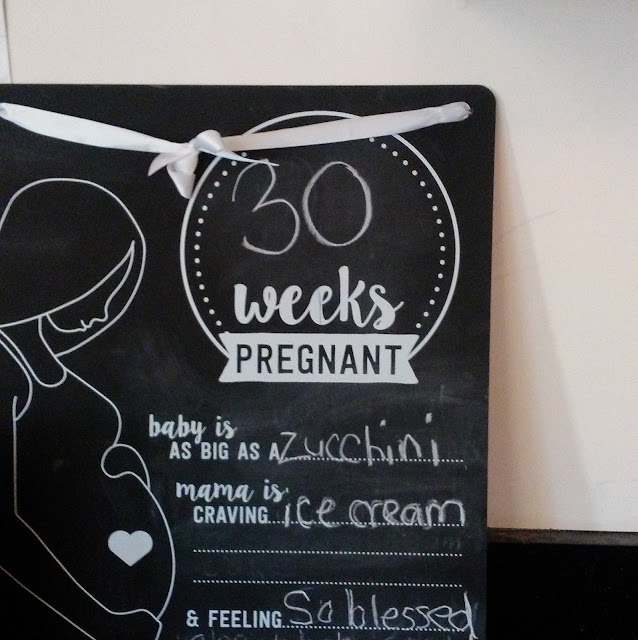 30
weeks
PREGNANT
baby is
AS BIG AS A zucchini
mama is
CRAVING ice cream
& FEELING So blessed